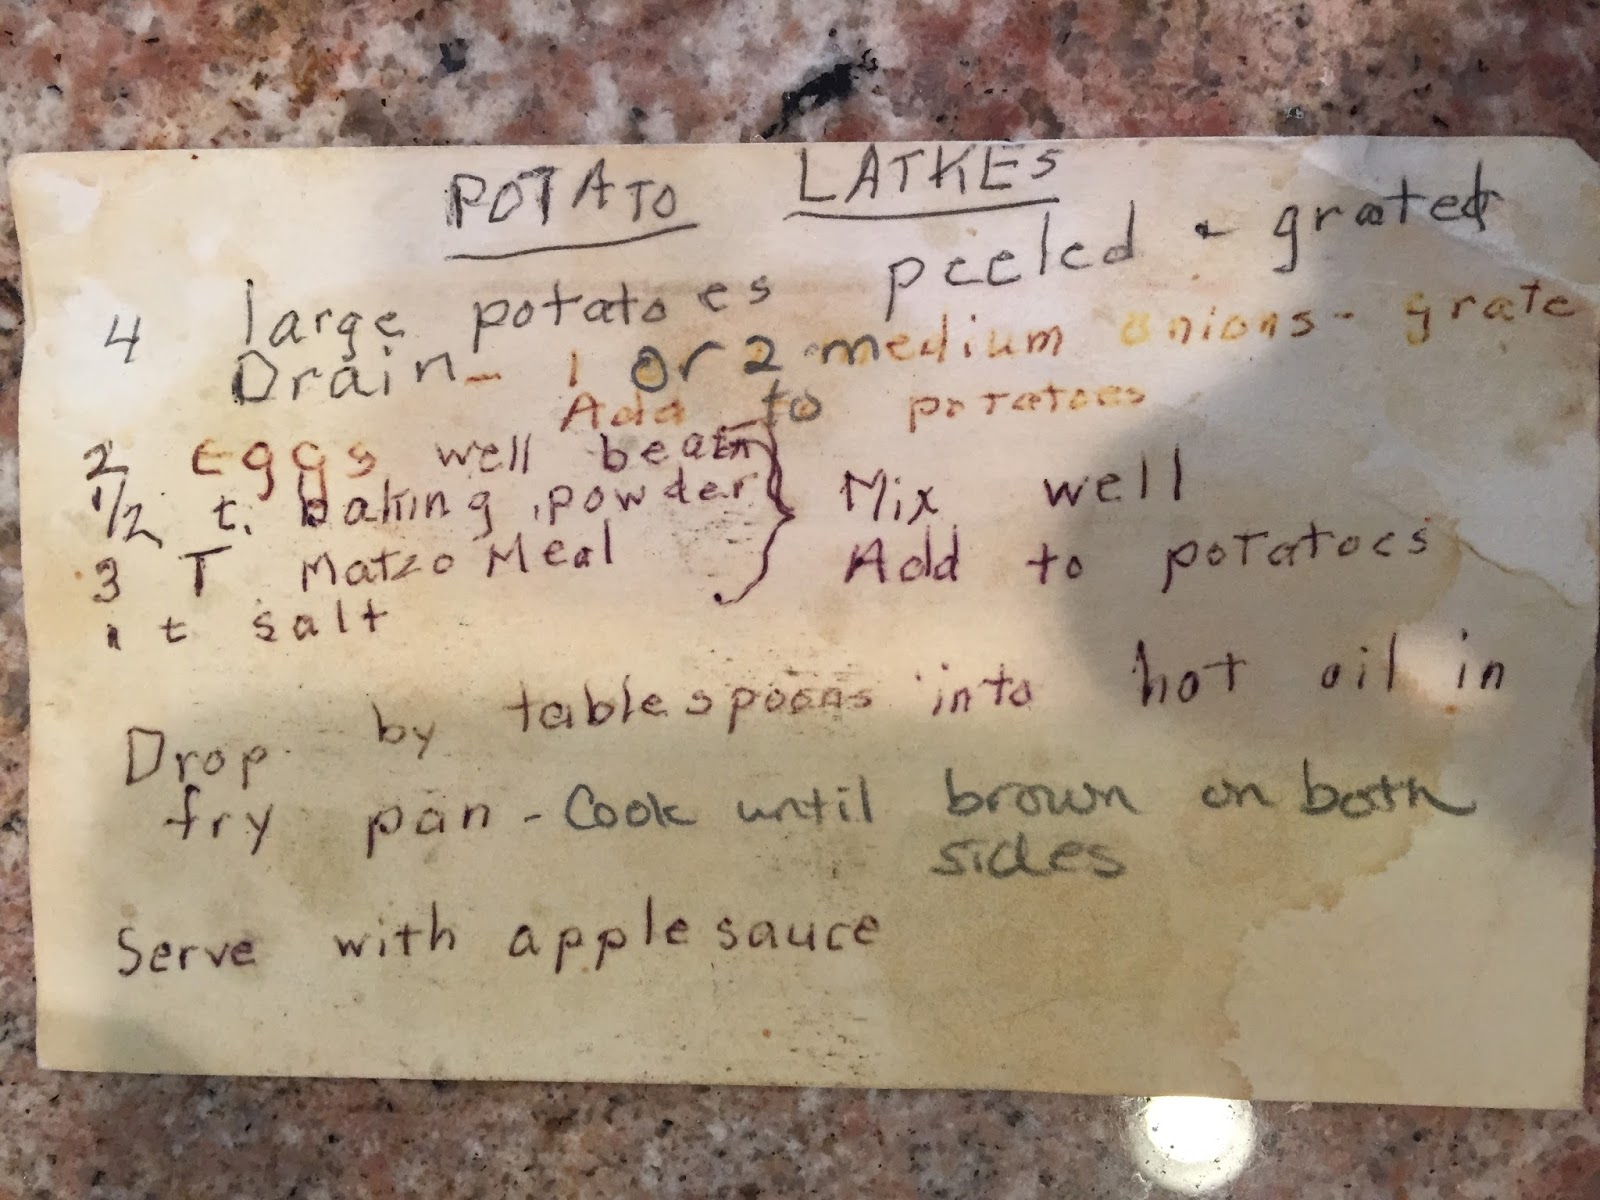 POTATO LATKES
4 large potatoes peeled + grated
Drain - 1 or 2 medium onions - grate
Add to potatoes
2 Eggs well beatn
1/2 t. baking powder } Mix well
3 T Matzo Meal Add to potatoes
1 t salt
Drop by tablespoons into hot oil in
fry pan - Cook until brown on both
sides
Serve with applesauce